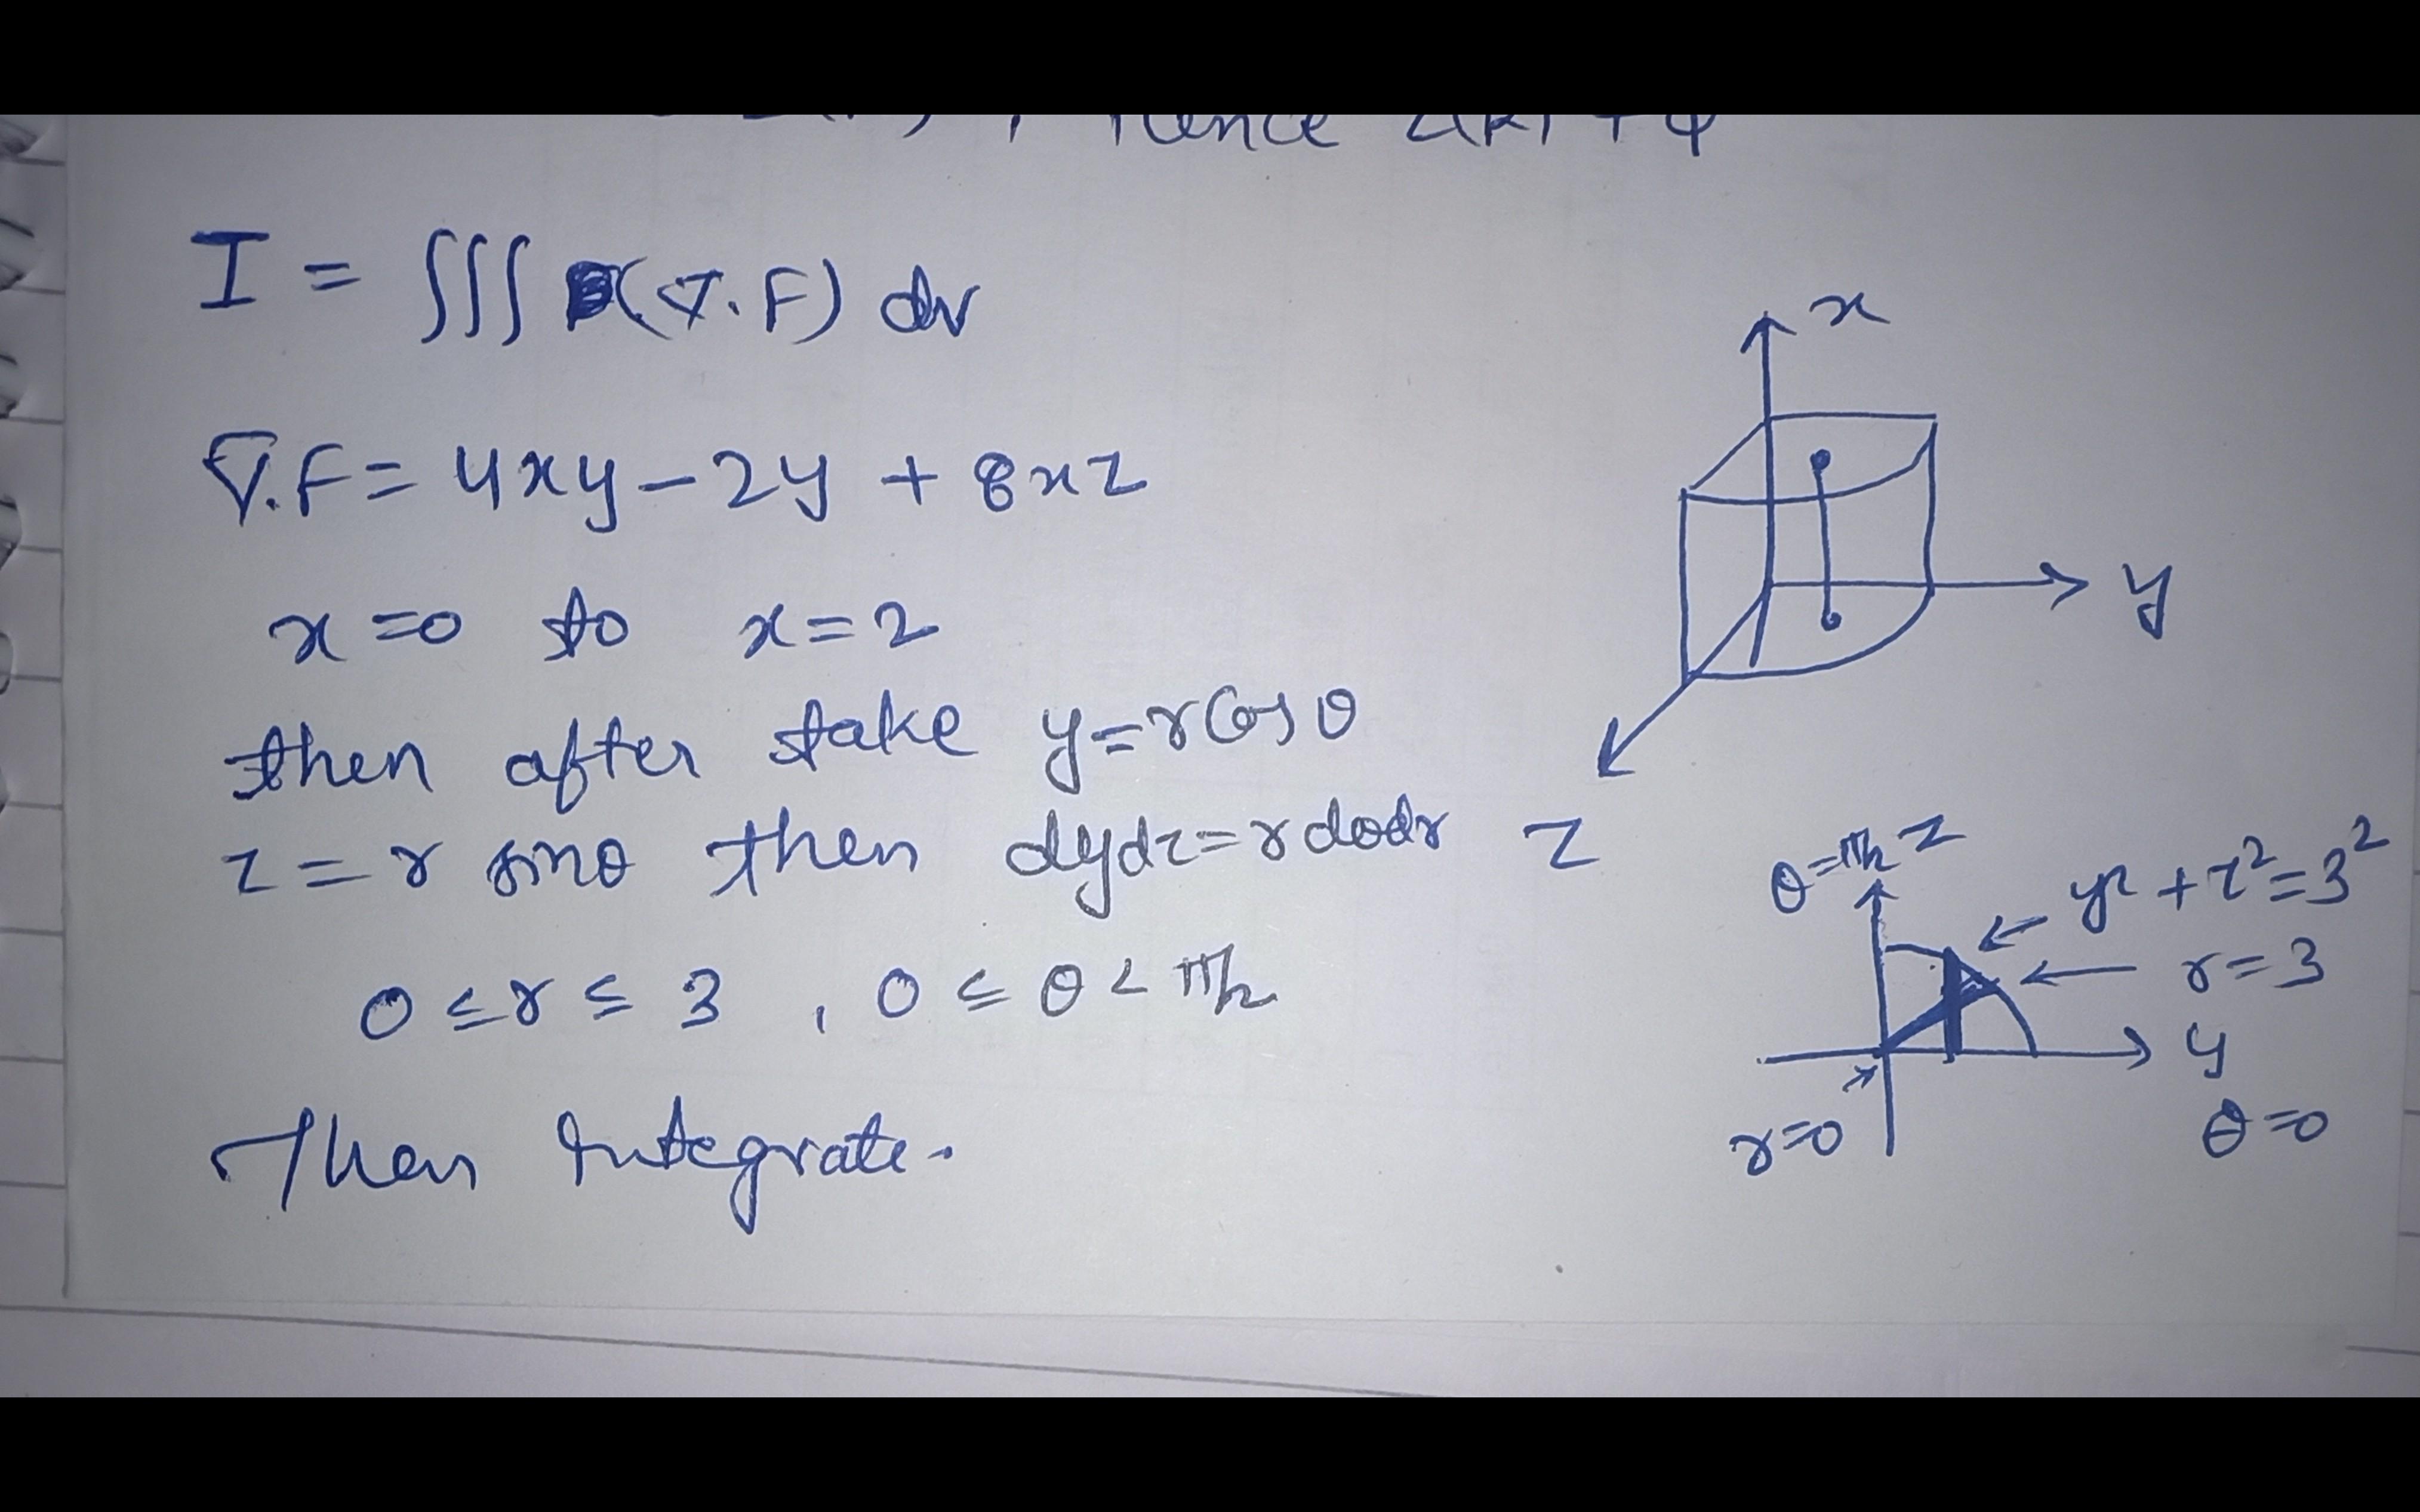 Hence
I = ∫∫∫ (∇.F) dv
∇.F = 4xy - 2y + 8xz
x=0 to x=2
then after take y=rCosθ
z=r sinθ then dydz=rdθdr
0≤r≤3 , 0≤θ<π/2
Then Integrate.
x
y
z
θ=π/2 z
y²+z²=3²
r=3
y
r=0
θ=0